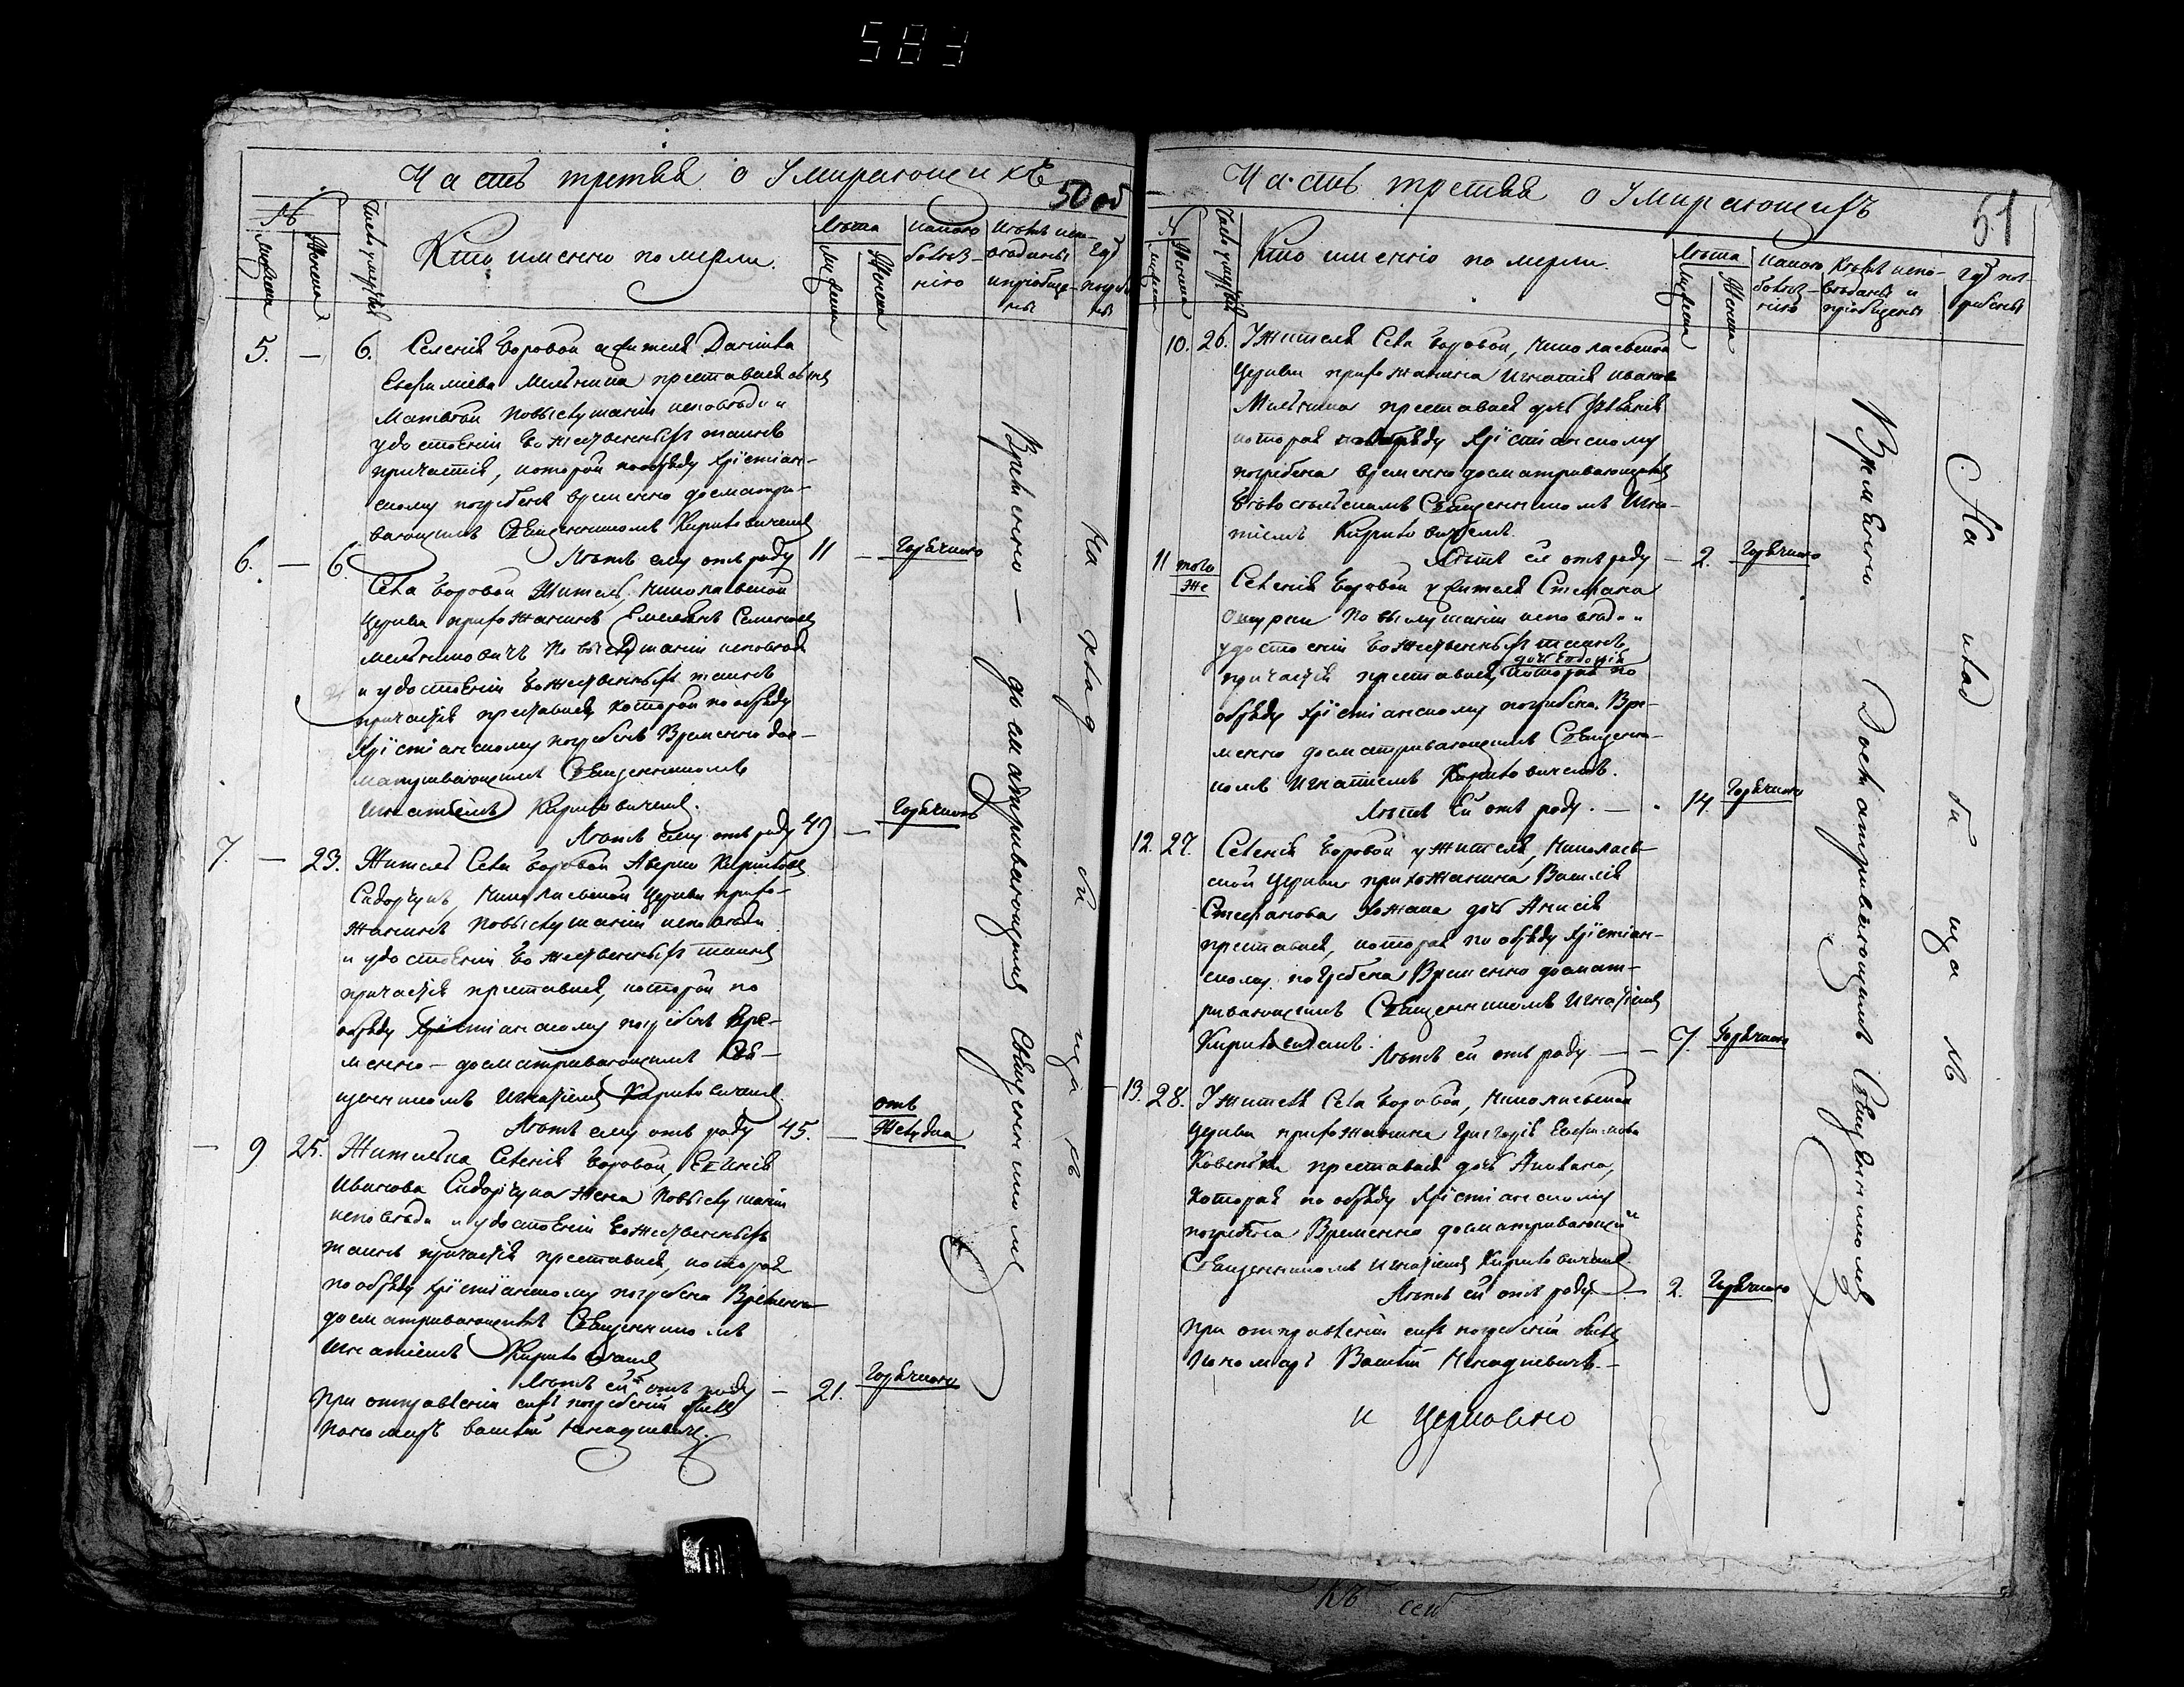 583
Часть третья о Умирающихъ
50 об
№
мужеска
Женска
Число умершихъ
Кто именно померли.
Лѣта
мужеска
Женска
какою
болѣз-
нію
Кѣмъ испо-
вѣданы
и пріобще-
ны
Гдѣ
погребе
ны
5. — 6. Селенія Боровой жителя Данiила
Евфиміева Мельника преставися сынъ
Матвѣй по выслушаніи исповѣди и
удостоеніи Божественныхъ таинъ
причастія, которой по обряду Христіан-
скому погребенъ временно досматри-
вающимъ Священникомъ Кириловичемъ
Лѣтъ ему отъ роду 11 — Горячкою
6. — 6. Села Боровой Житель, Николаевской
Церкви прихожанинъ Емельянъ Семеновъ
Мельниковичъ по выслушаніи исповѣди
и удостоеніи Божественныхъ таинъ
причастія преставися, которой по обряду
Христіанскому погребенъ Временно дос-
матривающимъ Священникомъ
Игнатіемъ Кириловичемъ.
Лѣтъ ему отъ роду 49 — Горячкою
7. — 23. Житель Села Боровой Аверко Кириловъ
Сидорчукъ, Николаевской Церкви прихо-
жанинъ по выслушаніи исповѣди
и удостоеніи Божественныхъ таинъ
причастія преставися, которой по
обряду Христіанскому погребенъ Вре-
менно — досматривающимъ Свя-
щенникомъ Игнатіемъ Кириловичемъ.
Лѣтъ ему отъ роду 45. — отъ
Желудка
— 9 25. Жителька Селенія Боровой,
Иванова Сидорчука Жена по выслушаніи
исповѣди и удостоеніи Божественныхъ
таинъ причастія преставися, которая
по обряду Христіанскому погребена Временно
досматривающимъ Священникомъ
Игнатіемъ Кириловичемъ
Лѣтъ ей отъ роду — 21. Горячкою
При отправленіи сихъ погребеній былъ
Пономарь Василій
Временно — досматривающимъ Священникомъ
На клад би ща хъ
Часть третья о Умирающихъ
51
№
Женска
Число умершихъ
Кто именно померли.
Лѣта
Мужеска
Женска
какою
болѣз-
нію
Кѣмъ испо-
вѣданы и
пріобщены
Гдѣ по-
гребены
10. 26. У Жителя Села Боровой, Николаевской
Церкви прихожанина Игнатія Иванова
Мельника преставися дочь
которая по обряду Христіанскому
погребена временно досматривающимъ
Священникомъ Игна-
тіемъ Кириловичемъ.
Лѣтъ ей отъ роду — 2. Горячкою
11 того
же
Селенія Боровой у жителя Стефана
по выслушаніи исповѣди и
удостоеніи Божественныхъ таинъ
дочь Евдокія
причастія преставися, которая по
обряду Христіанскому погребена Вре-
менно досматривающимъ Священни-
комъ Игнатіемъ Кириловичемъ.
Лѣтъ Ей отъ роду. — 14. Горячкою
12. 27. Селенія Боровой у Жителя, Николаев-
ской Церкви прихожанина Василія
Стефанова дочь Анисія
преставися, которая по обряду Христіан-
скому погребена Временно досмат-
ривающимъ Священникомъ Игнатіемъ
Кириловичемъ. Лѣтъ ей отъ роду — — 7. Горячкою
13. 28. У Жителя Села Боровой, Николаевской
Церкви прихожанина Григорія Евфимова
преставися дочь
Которая по обряду Христіанскому
погребена Временно досматривающимъ
Священникомъ Игнатіемъ Кириловичемъ.
Лѣтъ ей отъ роду — 2. Горячкою
При отправленіи сихъ погребеній былъ
Пономарь Василій
и церковно
Временно Досматривающимъ Священникомъ
На клад би ща хъ